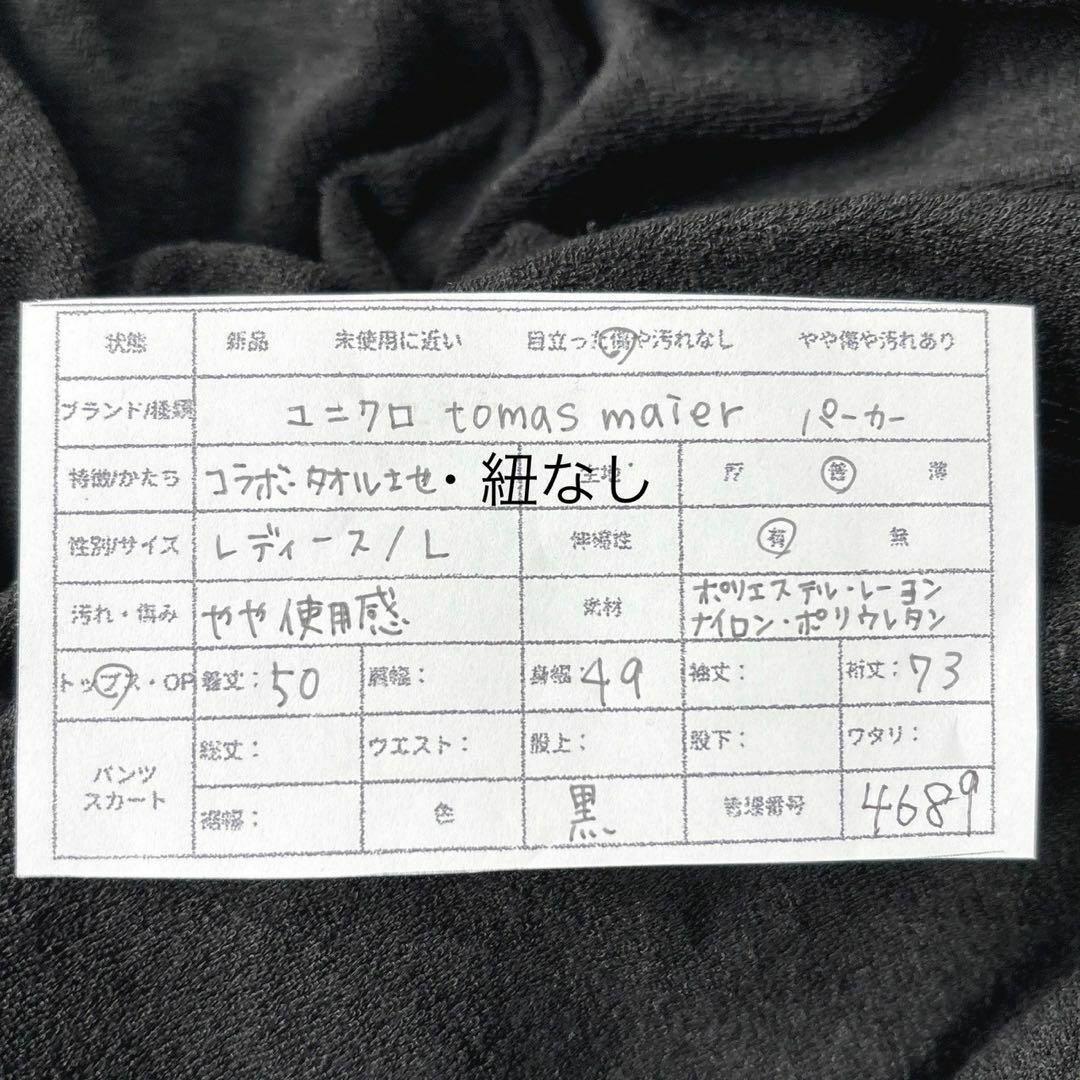 状態 新品 未使用に近い 目立った傷や汚れなし やや傷や汚れあり
ブランド/種類 ユニクロ tomas maier パーカー
特徴/かたち コラボ・タオル生地・紐なし 生地: 厚 普 薄
性別/サイズ レディース/L 伸縮性 有 無
汚れ・傷み やや使用感 素材 ポリエステル・レーヨン
ナイロン・ポリウレタン
トップス・OP 着丈:50 肩幅: 身幅:49 袖丈: 裄丈:73
パンツ 総丈: ウエスト: 股上: 股下: ワタリ:
スカート 裾幅: 色 黒 管理番号 4689